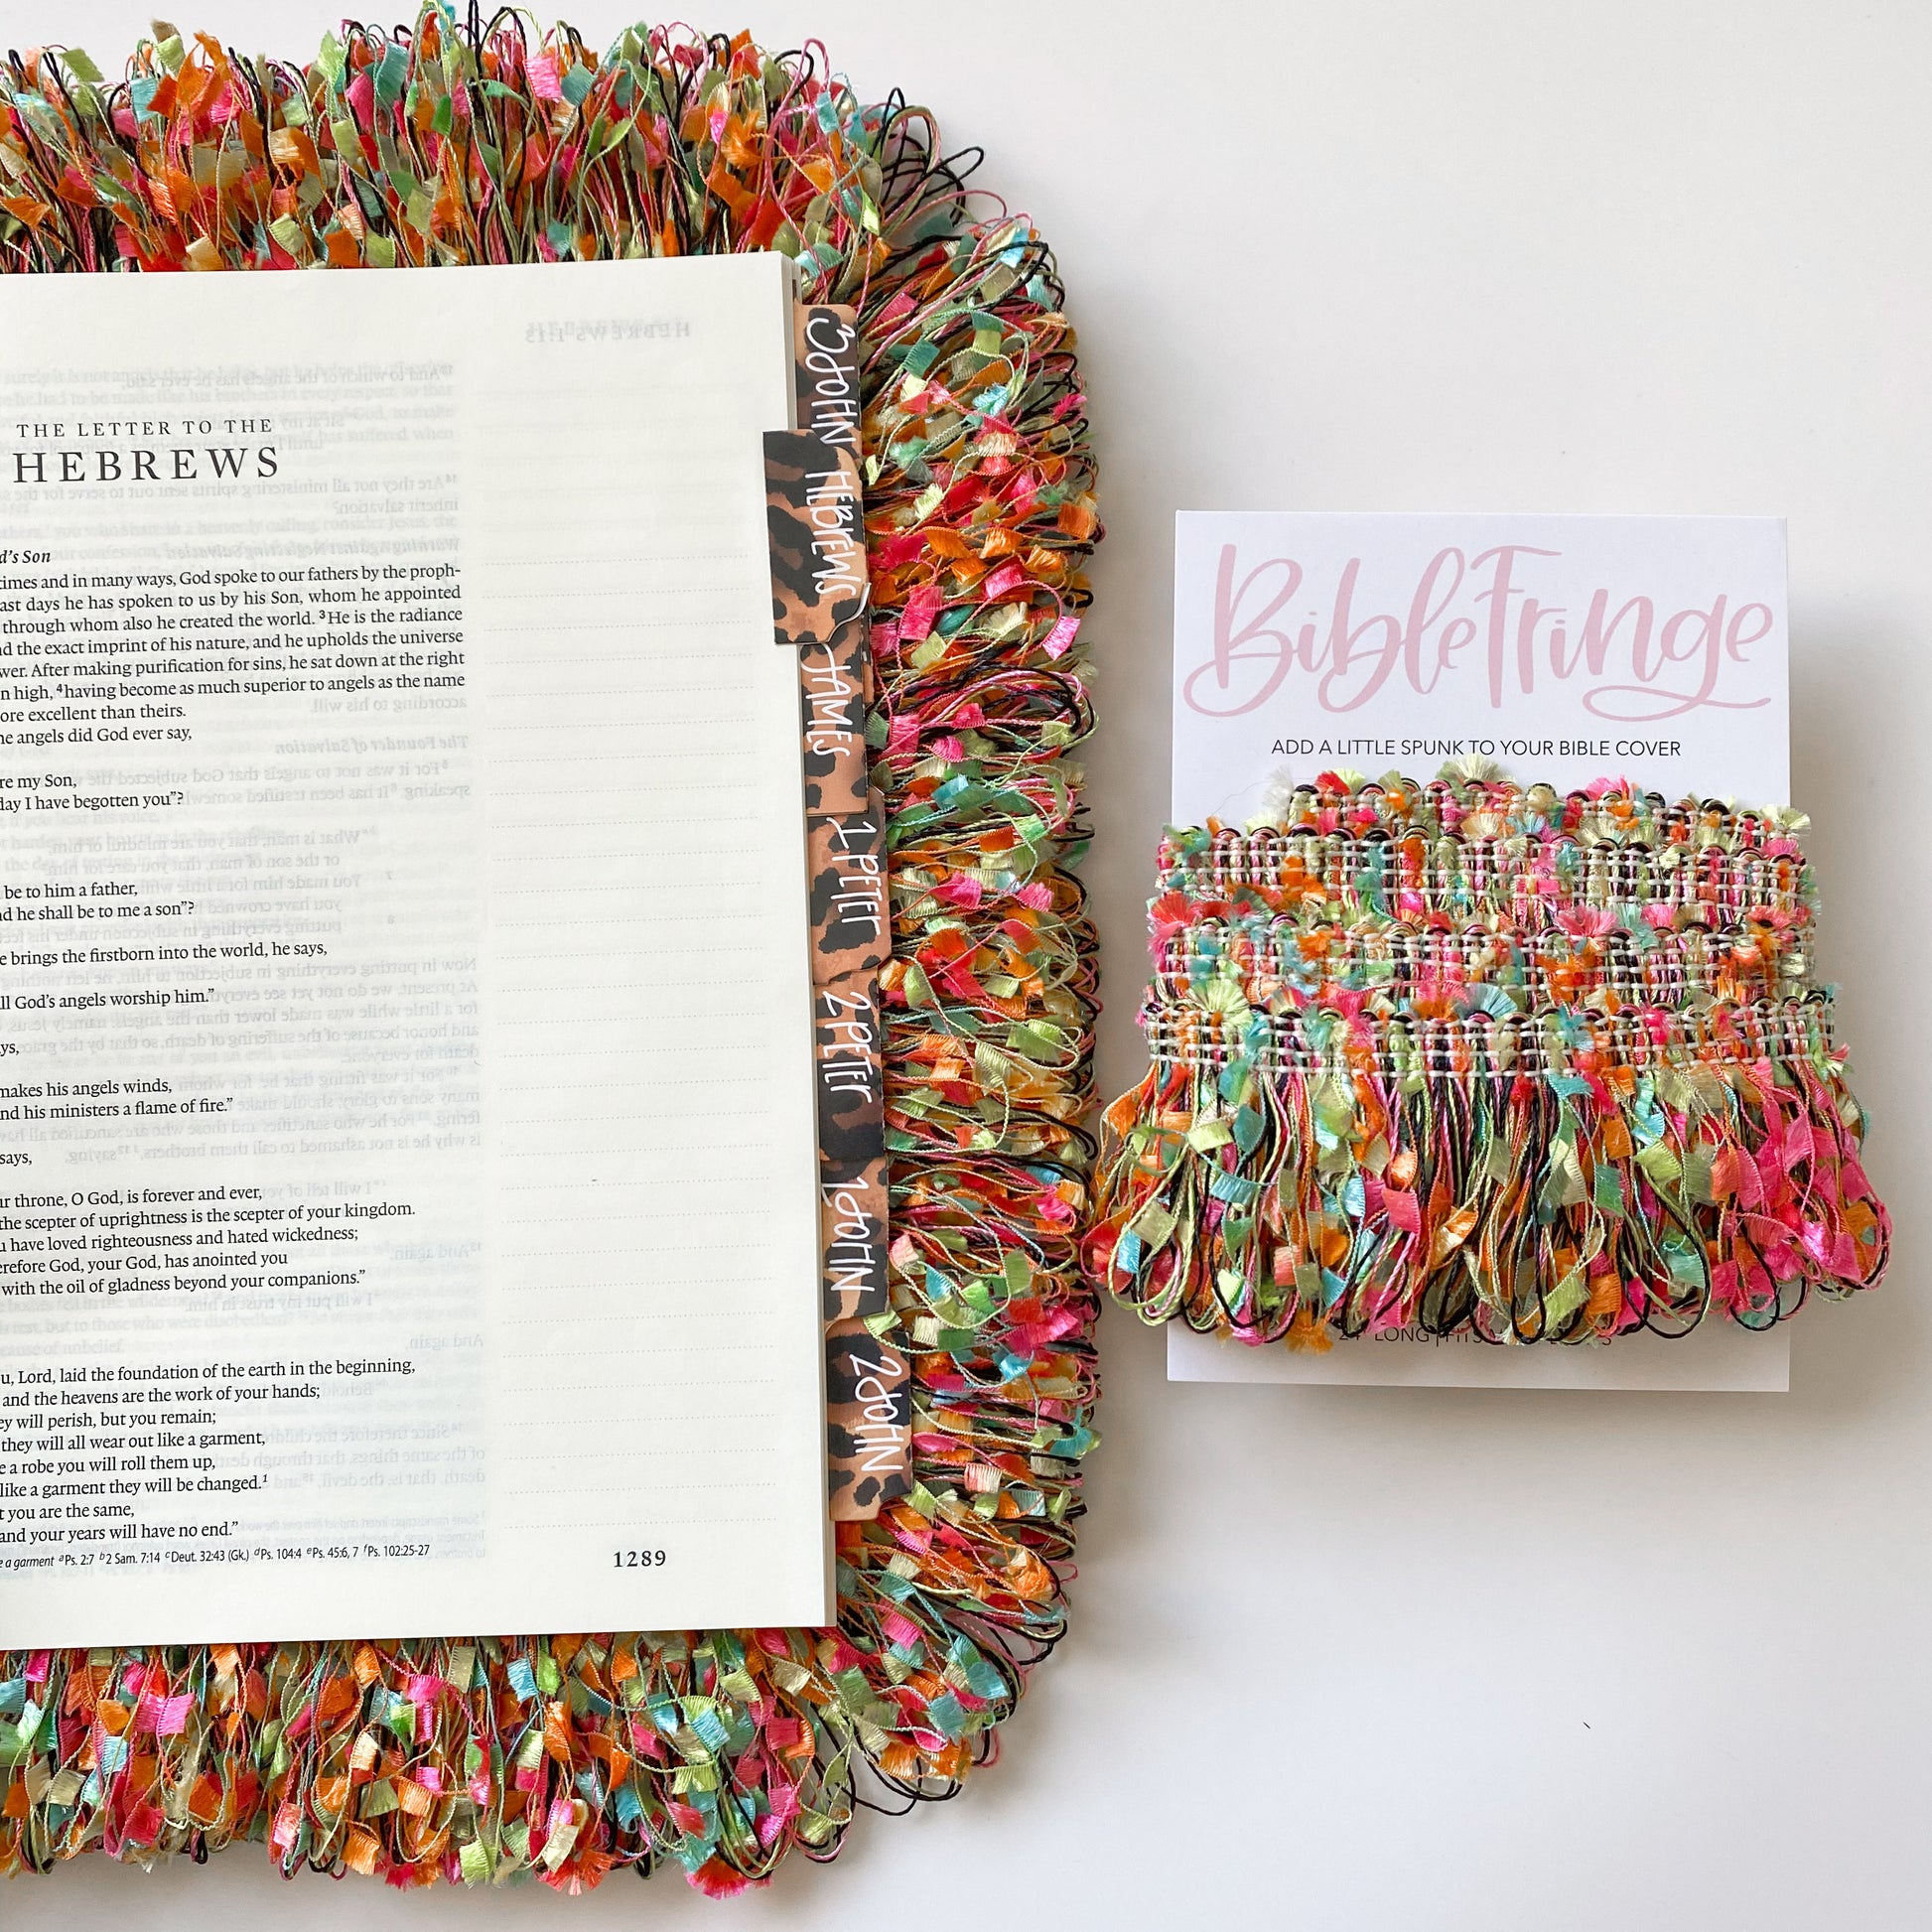 THE LETTER TO THE
HEBREWS
d's Son
times and in many ways, God spoke to our fathers by the proph-
ast days he has spoken to us by his Son, whom he appointed
through whom also he created the world. ³He is the radiance
d the exact imprint of his nature, and he upholds the universe
wer. After making purification for sins, he sat down at the right
n high, ⁴having become as much superior to angels as the name
ore excellent than theirs.
he angels did God ever say,
re my Son,
day I have begotten you”?
be to him a father,
d he shall be to me a son”?
e brings the firstborn into the world, he says,
ll God's angels worship him.”
ys,
makes his angels winds,
nd his ministers a flame of fire.”
says,
ur throne, O God, is forever and ever,
the scepter of uprightness is the scepter of your kingdom.
u have loved righteousness and hated wickedness;
erefore God, your God, has anointed you
with the oil of gladness beyond your companions.”
u, Lord, laid the foundation of the earth in the beginning,
and the heavens are the work of your hands;
ey will perish, but you remain;
they will all wear out like a garment,
e a robe you will roll them up,
like a garment they will be changed.¹
t you are the same,
and your years will have no end.”
e a garment ᵃPs. 2:7 ᵇ2 Sam. 7:14 ᶜDeut. 32:43 (Gk.) ᵈPs. 104:4 ᵉPs. 45:6, 7 ᶠPs. 102:25-27
1289
3JOHN
HEBREWS
JAMES
1 PETER
2 PETER
1JOHN
2JOHN
BibleFringe
ADD A LITTLE SPUNK TO YOUR BIBLE COVER
LONG